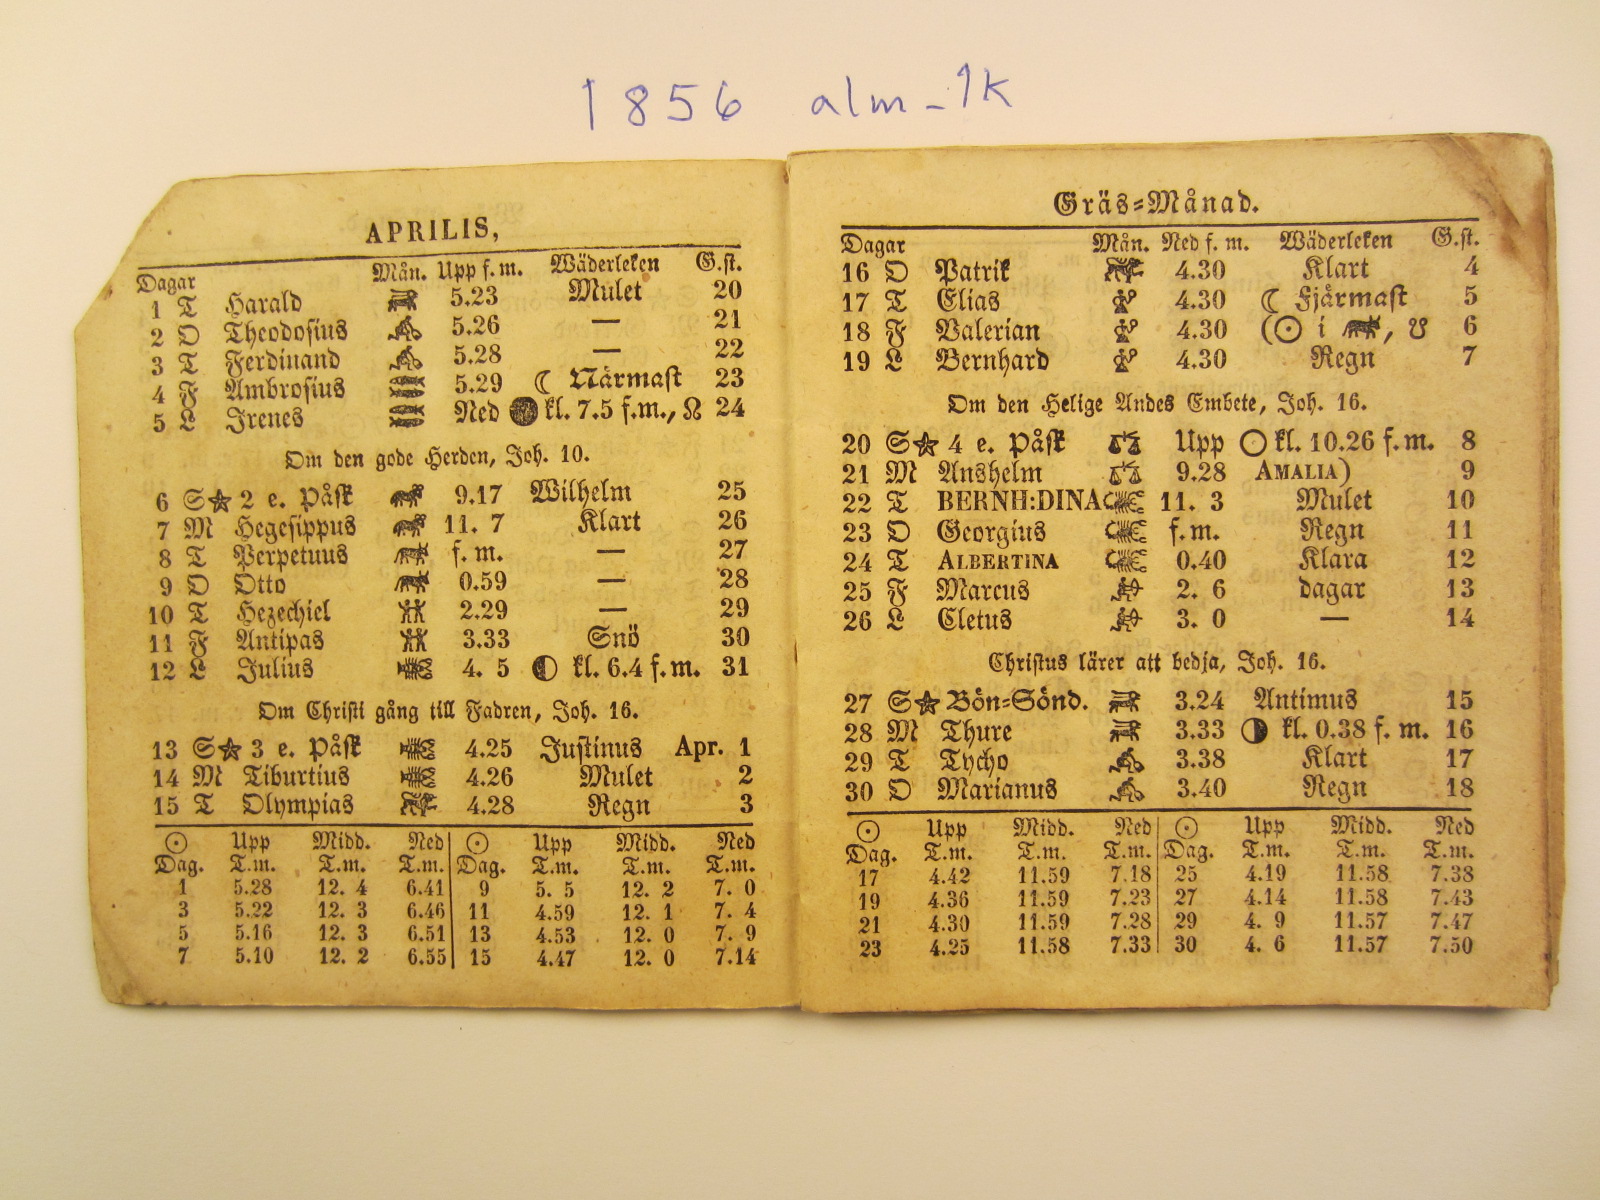 1856 alm_1K
APRILIS,
Dagar Mån. Upp f.m. Wäderleken G.st.
1 T Harald 5.23 Mulet 20
2 O Theodosius 5.26 — 21
3 T Ferdinand 5.28 — 22
4 F Ambrosius 5.29 ☾ Närmast 23
5 L Irenes Ned ● kl. 7.5 f.m., ☊ 24
Om den gode Herden, Joh. 10.
6 S☆ 2 e. Påsk 9.17 Wilhelm 25
7 M Hegesippus 11. 7 Klart 26
8 T Perpetuus f.m. — 27
9 O Otto 0.59 — 28
10 T Hezechiel 2.29 — 29
11 F Antipas 3.33 Snö 30
12 L Julius 4. 5 ◐ kl. 6.4 f.m. 31
Om Christi gång till Fadren, Joh. 16.
13 S☆ 3 e. Påsk 4.25 Justinus Apr. 1
14 M Tiburtius 4.26 Mulet 2
15 T Olympias 4.28 Regn 3
☉ Upp Midd. Ned ☉ Upp Midd. Ned
Dag. T.m. T.m. T.m. Dag. T.m. T.m. T.m.
1 5.28 12. 4 6.41 9 5. 5 12. 2 7. 0
3 5.22 12. 3 6.46 11 4.59 12. 1 7. 4
5 5.16 12. 3 6.51 13 4.53 12. 0 7. 9
7 5.10 12. 2 6.55 15 4.47 12. 0 7.14
Gräs=Månad.
Dagar Mån. Ned f. m. Wäderleken G.st.
16 O Patrik 4.30 Klart 4
17 T Elias 4.30 ☾ Fjärmast 5
18 F Valerian 4.30 (☉ i ♉, ☋ 6
19 L Bernhard 4.30 Regn 7
Om den Helige Andes Embete, Joh. 16.
20 S☆ 4 e. Påsk Upp ○ kl. 10.26 f.m. 8
21 M Anshelm 9.28 AMALIA) 9
22 T BERNH:DINA 11. 3 Mulet 10
23 O Georgius f.m. Regn 11
24 T ALBERTINA 0.40 Klara 12
25 F Marcus 2. 6 dagar 13
26 L Cletus 3. 0 — 14
Christus lärer att bedja, Joh. 16.
27 S☆ Bön=Sönd. 3.24 Antimus 15
28 M Thure 3.33 ◑ kl. 0.38 f. m. 16
29 T Tycho 3.38 Klart 17
30 O Marianus 3.40 Regn 18
☉ Upp Midd. Ned ☉ Upp Midd. Ned
Dag. T.m. T.m. T.m. Dag. T.m. T.m. T.m.
17 4.42 11.59 7.18 25 4.19 11.58 7.38
19 4.36 11.59 7.23 27 4.14 11.58 7.43
21 4.30 11.59 7.28 29 4. 9 11.57 7.47
23 4.25 11.58 7.33 30 4. 6 11.57 7.50